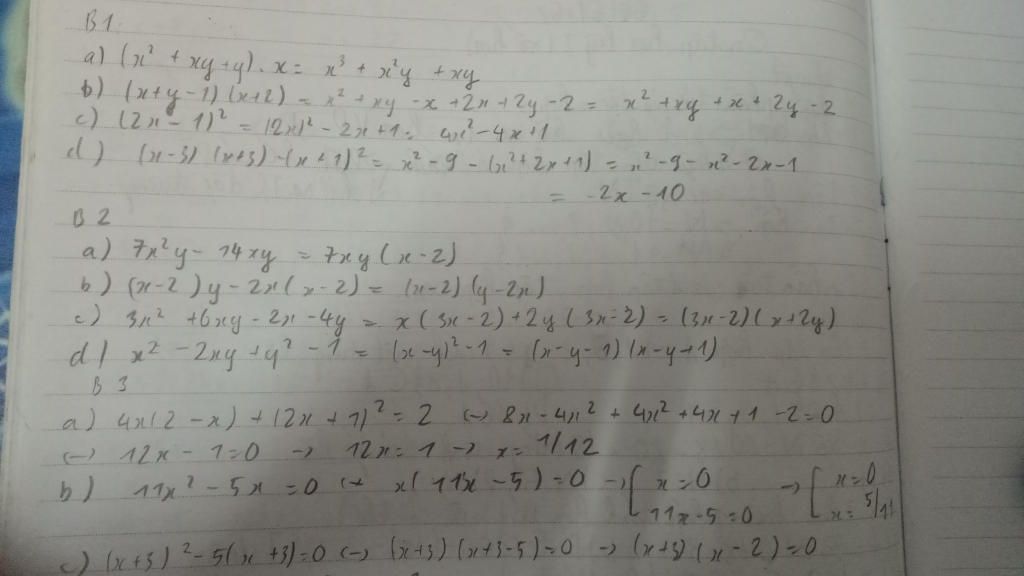 B1
a) (x² + xy + y) . x = x³ + x²y + xy
b) (x+y-1)(x+2) = x² + xy - x + 2x + 2y - 2 = x² + xy + x + 2y - 2
c) (2x - 1)² = (2x)² - 2x + 1 = 4x² - 4x + 1
d) (x-3)(x+3) - (x+1)² = x² - 9 - (x² + 2x + 1) = x² - 9 - x² - 2x - 1
= -2x - 10
B2
a) 7x²y - 14xy = 7xy(x-2)
b) (x-2)y - 2x(x-2) = (x-2)(y-2x)
c) 3x² + 6xy - 2x - 4y = x(3x-2) + 2y(3x-2) = (3x-2)(x+2y)
d) x² - 2xy + y² - 1 = (x-y)² - 1 = (x-y-1)(x-y+1)
B3
a) 4x(2-x) + (2x+1)² = 2 (-> 8x - 4x² + 4x² + 4x + 1 - 2 = 0
(-> 12x - 1 = 0 -> 12x = 1 -> x = 1/12
b) 11x² - 5x = 0 (-> x(11x - 5) = 0 -> [ x = 0 -> [ x = 0
11x - 5 = 0 x = 5/11
c) (x+3)² - 5(x+3) = 0 (-> (x+3)(x+3-5) = 0 -> (x+3)(x-2) = 0